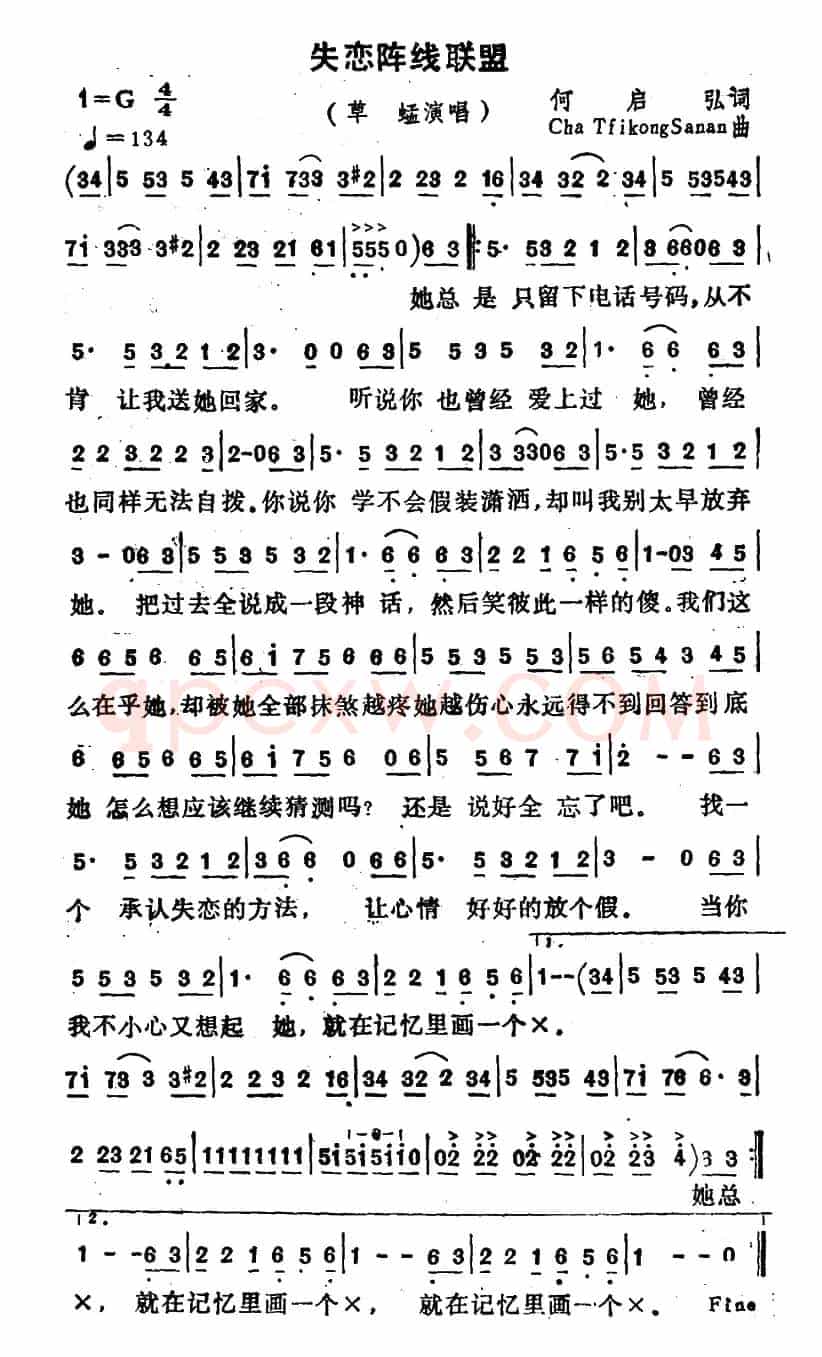 失恋阵线联盟
1=G 4/4
♩=134
(草 蜢演唱)
何 启 弘词
Cha TfikongSanan曲
(34|5 53 5 43|7i 733 3#2|2 23 2 16|34 32 2 34|5 53543|
7i 333 3#2|2 23 21 61|555 0)63‖:5· 53212|3 66063|
她总 是 只留下电话号码,从不
5· 53212|3· 0063|5 535 32|1· 66 63|
肯 让我送她回家。 听说你 也曾经 爱上过 她, 曾经
2232223|2-063|5· 53212|333063|5·53212|
也同样无法自拨。你说你 学不会假装潇洒,却叫我别太早放弃
3-063|553532|1· 6663|221656|1-0345|
她。 把过去全说成一段神 话, 然后笑彼此一样的傻。我们这
6656665|6i756666|5535553|5654345|
么在乎她,却被她全部抹煞越疼她越伤心永远得不到回答到底
6656665|6i75606|55677i|2--63|
她 怎么想应该继续猜测吗? 还是 说好全 忘了吧。 找一
5· 53212|366 066|5· 53212|3-063|
个 承认失恋的方法, 让心情 好好的放个假。 当你
1.
553532|1· 6663|221656|1--(34|5 53 5 43|
我不小心又想起 她, 就在记忆里画一个×。
7i 73 3 3#2|2 23 2 16|34 32 2 34|5 535 43|7i 76 6·3|
2 23 21 65|11111111|5i5i5ii0|02 22 02 22|02 23 4)33:‖
她总
2.
1--63|221656|1--63|221656|1--0‖
×, 就在记忆里画一个×, 就在记忆里画一个×。 Fine
qpcxw.COM